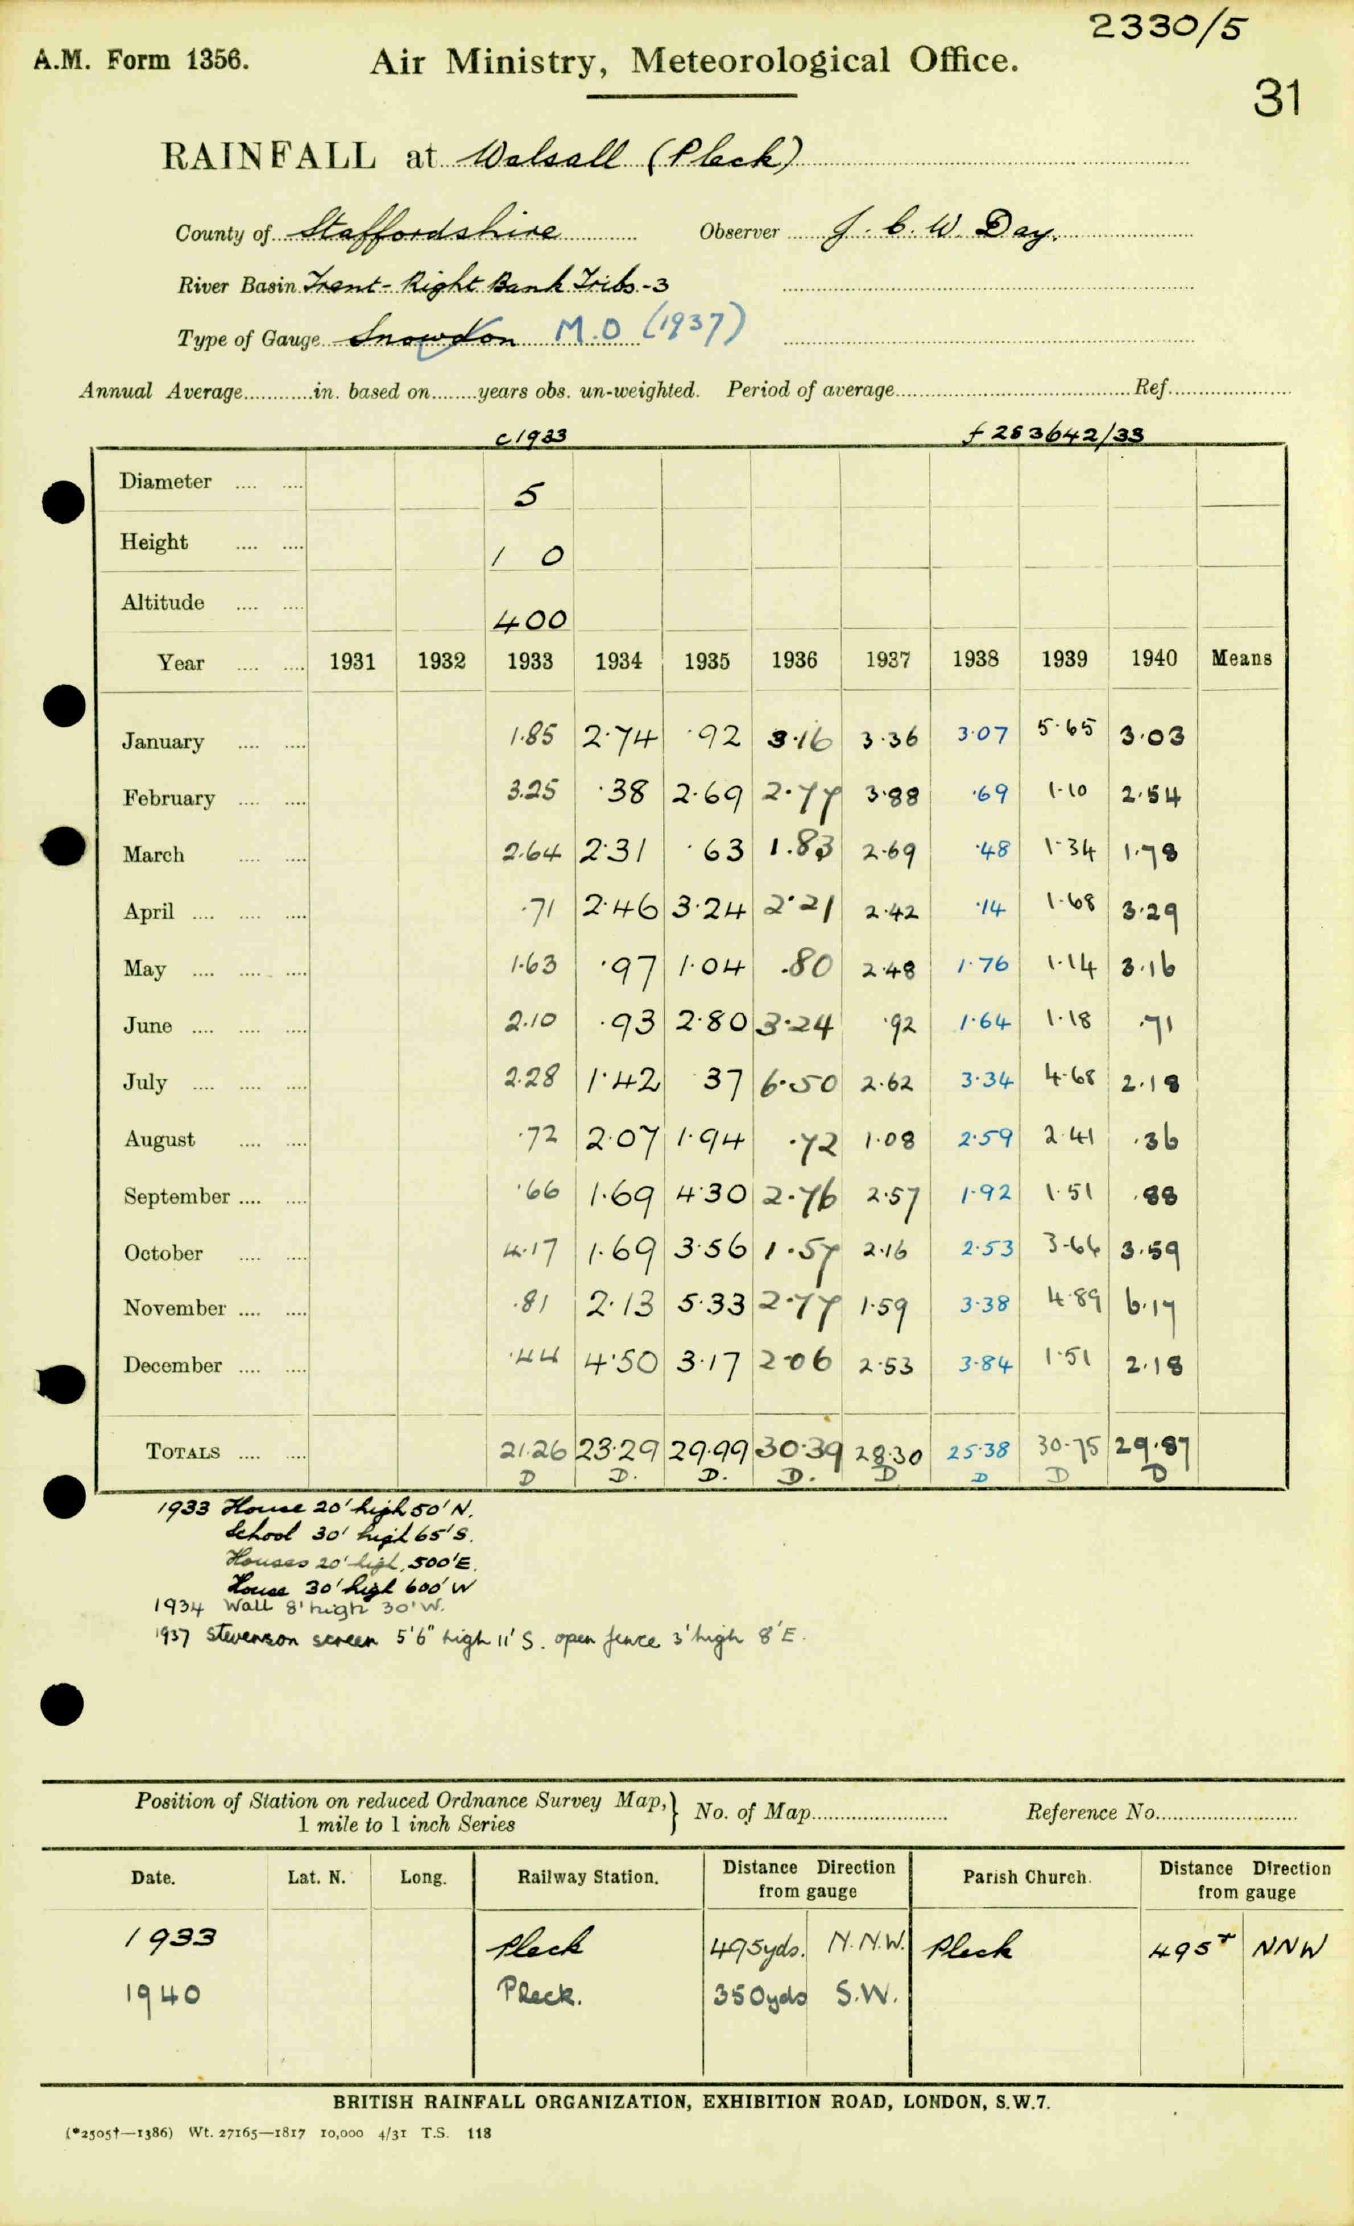 2330/5
A.M. Form 1356.
Air Ministry, Meteorological Office.
31
RAINFALL at Walsall (Pleck)
County of Staffordshire Observer J. C. W. Day.
River Basin Trent - Right Bank Tribs - 3
Type of Gauge Snowdon M.O (1937)
Annual Average in. based on years obs. un-weighted. Period of average Ref.
c 1933 f 283642/33
Diameter 5
Height 1 0
Altitude 400
Year 1931 1932 1933 1934 1935 1936 1937 1938 1939 1940 Means
January 1.85 2.74 .92 3.16 3.36 3.07 5.65 3.03
February 3.25 .38 2.69 2.77 3.88 .69 1.10 2.54
March 2.64 2.31 .63 1.83 2.69 .48 1.34 1.78
April .71 2.46 3.24 2.21 2.42 .14 1.68 3.29
May 1.63 .97 1.04 .80 2.48 1.76 1.14 3.16
June 2.10 .93 2.80 3.24 .92 1.64 1.18 .71
July 2.28 1.42 37 6.50 2.62 3.34 4.68 2.18
August .72 2.07 1.94 .72 1.08 2.59 2.41 .36
September .66 1.69 4.30 2.76 2.57 1.92 1.51 .88
October 4.17 1.69 3.56 1.57 2.16 2.53 3.66 3.59
November .81 2.13 5.33 2.77 1.59 3.38 4.89 6.17
December .44 4.50 3.17 2.06 2.53 3.84 1.51 2.18
TOTALS 21.26 23.29 29.99 30.39 28.30 25.38 30.75 29.87
D D. D. D. D D D D
1933 House 20' high 50' N.
School 30' high 65' S.
Houses 20' high, 500' E.
House 30' high 600' W
1934 Wall 8' high 30' W.
1937 Stevenson screen 5'6" high 11' S. open fence 3' high 8' E.
Position of Station on reduced Ordnance Survey Map, } No. of Map Reference No.
1 mile to 1 inch Series
Date. Lat. N. Long. Railway Station. Distance Direction from gauge Parish Church. Distance Direction from gauge
1933 Pleck 495yds. N.N.W. Pleck 495+ NNW
1940 Pleck. 350yds S.W.
BRITISH RAINFALL ORGANIZATION, EXHIBITION ROAD, LONDON, S.W.7.
(*2505†—1386) Wt. 27165—1817 10,000 4/31 T.S. 118